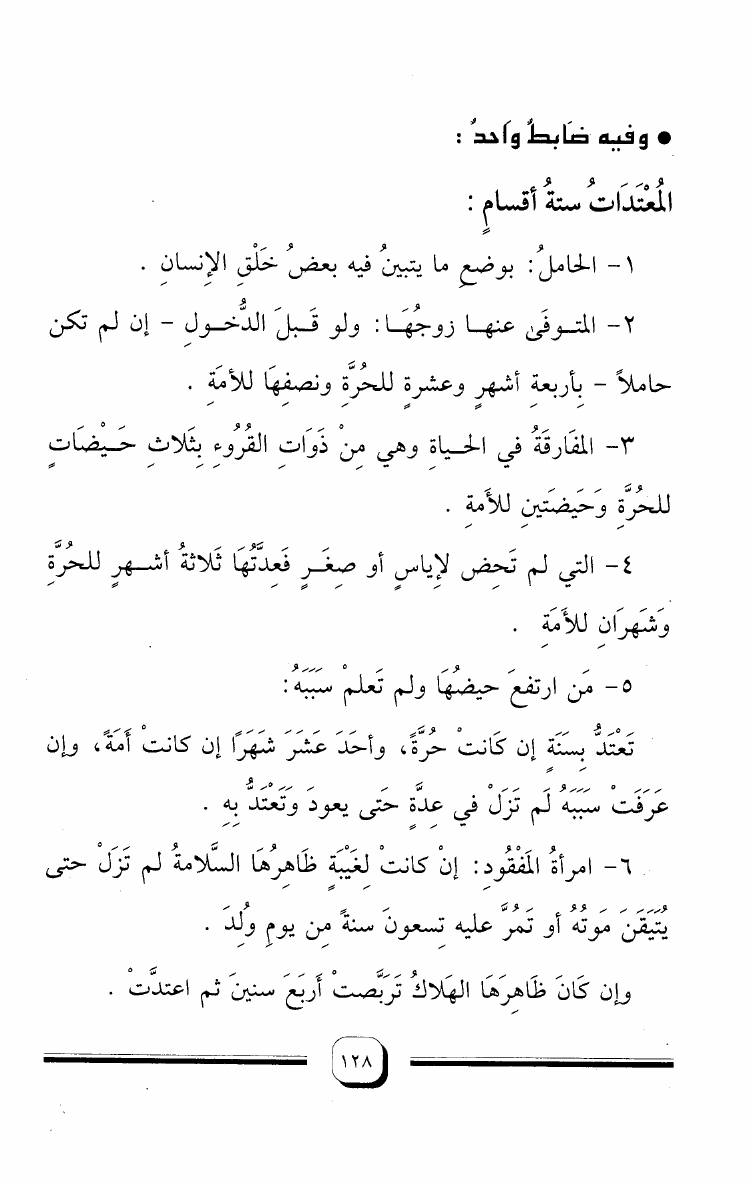 • وفيه ضَابطُ واحدُ :
المُعْتَدَاتُ ستةُ أقسامٍ :
١- الحاملُ: بوضعِ ما يتبينُ فيه بعضُ خَلْقِ الإنسانِ .
٢- المتوفَى عنها زوجُهَا: ولو قَبلَ الدُّخولِ - إن لم تكن
حاملاً - بِأربعةِ أشهرٍ وعشرةٍ للحُرَّةِ ونصفِهَا للأمَةِ .
٣- المفَارقَةُ في الحياةِ وهي مِنْ ذَوَاتِ القُرُوءِ بِثَلاثِ حَيْضَاتٍ
للحُرَّةِ وَحَيضَتَينِ للأَمةِ .
٤- التي لم تَحِض لإياسٍ أو صِغَرٍ فَعِدَّتُهَا ثَلاثةُ أشهرٍ للحُرَّةِ
وَشَهرَانِ للأَمَةِ .
٥- مَن ارتفعَ حيضُهَا ولم تَعلمْ سَبَبَهُ:
تَعْتَدُّ بِسَنَةٍ إن كَانتْ حُرَّةً، وأحَدَ عَشَرَ شَهَرًا إن كانتْ أمَةً، وإن
عَرَفَتْ سَبَبَهُ لَم تَزَلْ في عِدَّةٍ حَتى يعودَ وَتَعْتَدُّ بِهِ .
٦- امرأةُ المَفْقُودِ: إنْ كانتْ لِغَيْبَةٍ ظَاهِرُهَا السَّلامةُ لم تَزَلْ حتى
يُتَيَقنَ مَوتُهُ أو تَمُرَّ عليه تِسعونَ سنةً مِن يومِ وُلِدَ .
وإن كَانَ ظَاهِرَهَا الهَلاكُ تَرَبَّصتْ أربَعَ سنينَ ثم اعتدَّتْ .
١٢٨